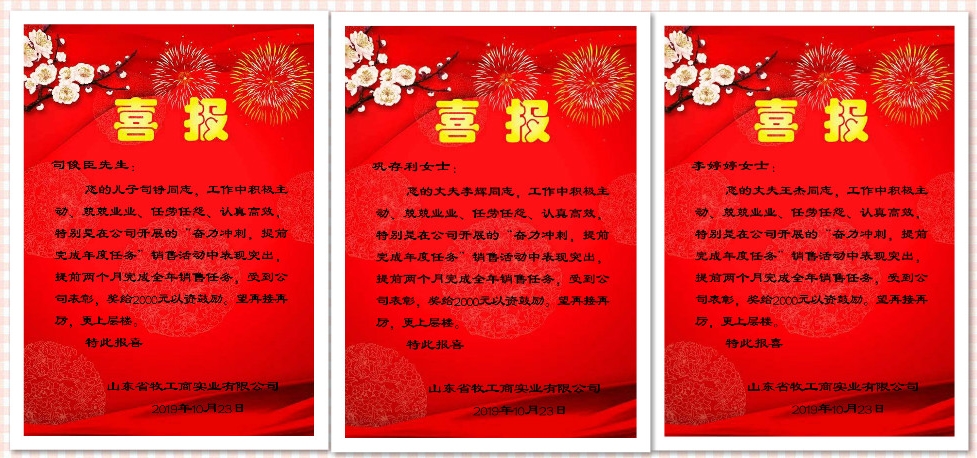 喜报
司俊臣先生：
您的儿子司铮同志，工作中积极主
动、兢兢业业、任劳任怨、认真高效，
特别是在公司开展的“奋力冲刺，提前
完成年度任务”销售活动中表现突出，
提前两个月完成全年销售任务，受到公
司表彰，奖给2000元以资鼓励。望再接再
厉，更上层楼。
特此报喜
山东省牧工商实业有限公司
2019年10月23日
喜报
巩存利女士：
您的丈夫李辉同志，工作中积极主
动、兢兢业业、任劳任怨、认真高效，
特别是在公司开展的“奋力冲刺，提前
完成年度任务”销售活动中表现突出，
提前两个月完成全年销售任务，受到公
司表彰，奖给2000元以资鼓励。望再接再
厉，更上层楼。
特此报喜
山东省牧工商实业有限公司
2019年10月23日
喜报
李婷婷女士：
您的丈夫王杰同志，工作中积极主
动、兢兢业业、任劳任怨、认真高效，
特别是在公司开展的“奋力冲刺，提前
完成年度任务”销售活动中表现突出，
提前两个月完成全年销售任务，受到公
司表彰，奖给2000元以资鼓励。望再接再
厉，更上层楼。
特此报喜
山东省牧工商实业有限公司
2019年10月23日